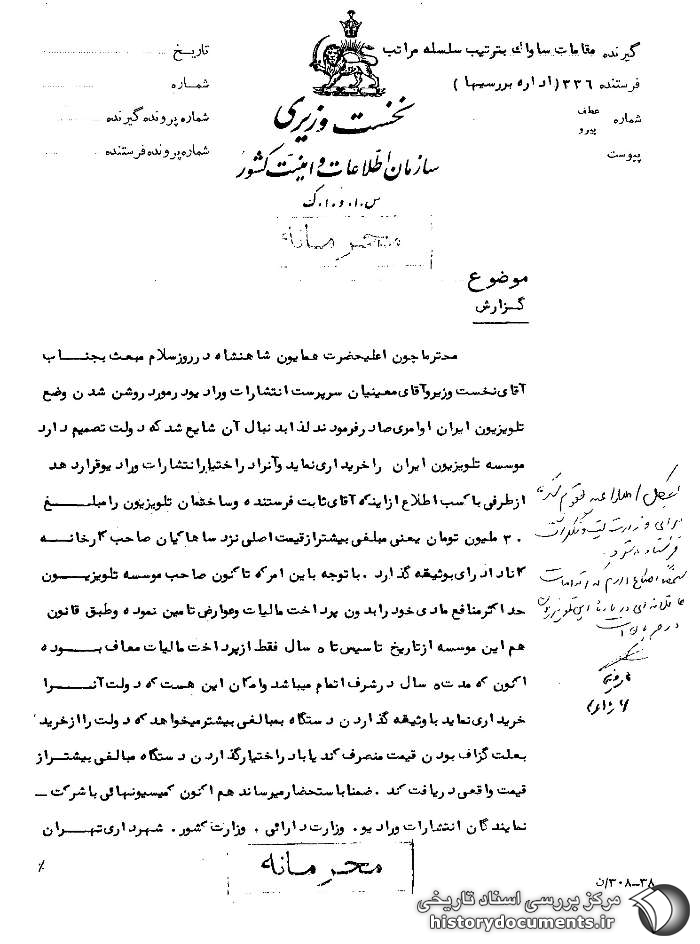 گیرنده مقامات ساواک بترتیب سلسله مراتب
فرستنده ۳۳۶ (اداره بررسیها)
شماره عطف پیرو
پیوست
تاریخ
شماره
شماره پرونده گیرنده
شماره پرونده فرستنده
نخست وزیری
سازمان اطلاعات و امنیت کشور
س.ا.و.ا.ک
محرمانه
موضوع
گزارش
محترما چون اعلیحضرت همایون شاهنشاه در روز سلام مبعث بجناب
آقای نخست وزیر و آقای معینیان سرپرست انتشارات و رادیو در مورد روشن شدن وضع
تلویزیون ایران اوامری صادر فرمودند لذا بدنبال آن شایع شد که دولت تصمیم دارد
موسسه تلویزیون ایران را خریداری نماید و آنرا در اختیار انتشارات و رادیو قرار دهد
از طرفی با کسب اطلاع از اینکه آقای ثابت فرستنده و ساختمان تلویزیون را مبلغ
۳۰ ملیون تومان یعنی مبلغی بیشتر از قیمت اصلی نزد ساهاکیان صاحب کارخانه
کانادا درای بوثیقه گذارد . با توجه باین امر که تاکنون صاحب موسسه تلویزیون
حداکثر منافع مادی خود را بدون پرداخت مالیات و عوارض تامین نموده و طبق قانون
هم این موسسه از تاریخ تاسیس تا ۵ سال فقط از پرداخت مالیات معاف بوده
اکنون که مدت ۵ سال در شرف اتمام میباشد و امکان این هست که دولت آنرا
خریداری نماید با وثیقه گذاردن دستگاه بمبالغی بیشتر میخواهد که دولت را از خرید
بعلت گزاف بودن قیمت منصرف کند یا با در اختیار گذاردن دستگاه مبالغی بیشتر از
قیمت واقعی دریافت کند . ضمنا باستحضار میرساند هم اکنون کمیسیونهائی با شرکت –
نمایندگان انتشارات و رادیو . وزارت دارائی . وزارت کشور . شهرداری تهران
محرمانه
٪
۳۸–۳۰۸/ن
مرکز بررسی اسناد تاریخی
historydocuments.ir